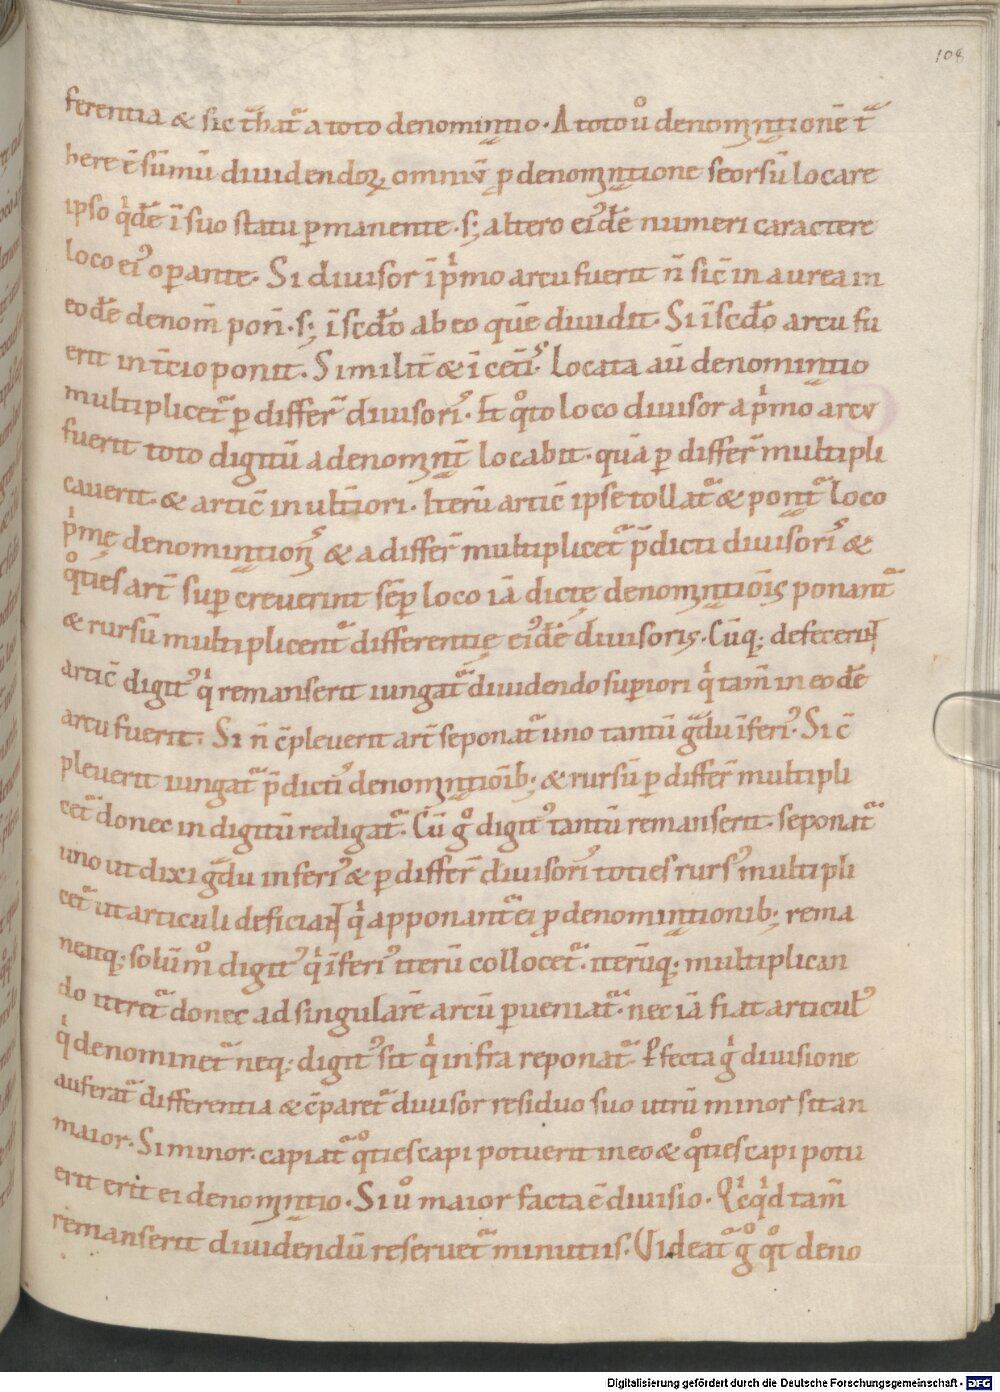 108
ferentia & sic t̄hat᷑ a toto denominatio. A toto ů denominationē t᷑
here ē sūmū diuidendoꝝ omniū p denominatione seorsū locare
ipso qⁱdē ī suo statu ꝑmanente. s; altero eiꝰdē numeri caractere
loco eiꝰ oꝑante. Si diuisor ī pⁱmo arcu fuerit n̄ sic̄ in aurea in
eodē denom̄ pon̄. s; ī sc̄do ab eo quē diuidit. Si ī sc̄do arcu fu
erit in t̄cio ponit. Similit̄ & ī cet̄iꝰ. Locata aū denominatio
multiplicet᷑ ꝑ differ̄ diuisoriꝰ. Et qͦto loco diuisor a pⁱmo arcu
fuerit toto digitū a denominat̄ locabit. quā ꝑ differ̄ multipli
cauerit. & artic̄ in ult̄iori. Iterū artic̄ ipse tollat᷑ & ponat᷑ loco
pⁱmę denominationiꝰ & a differ̄ multiplicet᷑ p̄dicti diuisoriꝰ &
qͦties art̄ suꝑcreuerint sēꝑ loco iā dictę denominationis ponant᷑
& rursū multiplicent᷑ differentię eiꝰdē diuisoris. Cūq; defecerunt
artic̄ digitꝰ qⁱ remanserit iungat᷑ diuidendo suꝑiori qⁱ tam̄ in eodē
arcu fuerit. Si n̄ c̄pleuerit art̄ seponat᷑ uno tantū gᷓdu īferiꝰ. Si c̄
pleuerit iungat᷑ p̄dictiꝰ denominationib; & rursū ꝑ differ̄ multipli
cet᷑ donec in digitū redigat᷑. Cū gͦ digitꝰ tantū remanserit. seponat᷑
uno ut dixi gᷓdu inferiꝰ & ꝑ differ̄ diuisoriꝰ toties rursꝰ multipli
cet᷑ ut articuli deficiant qⁱ apponant᷑ ei p denominationib; rema
neatq; solūmͦ digitꝰ qⁱ īferiꝰ iterū collocet᷑. iterūq; multiplican
do iteret᷑ donec ad singularē arcū ꝑueniat᷑. nec iā fiat articulꝰ
qⁱ denominet᷑ neq; digitꝰ sit qⁱ infra reponat᷑. Ꝑfecta gⁱ diuisione
auferat᷑ differentia & c̄paret᷑ diuisor residuo suo utrū minor sit an
maior. Si minor. capiat᷑ qͦties capi potuerit in eo & qͦties capi potu
erit erit ei denominatio. Si ů maior facta ē diuisio. Qⁱcqⁱd tam̄
remanserit diuidendū reseruet᷑ minutiis. Videat᷑ gͦ qͦt deno
Digitalisierung gefördert durch die Deutsche Forschungsgemeinschaft - DFG